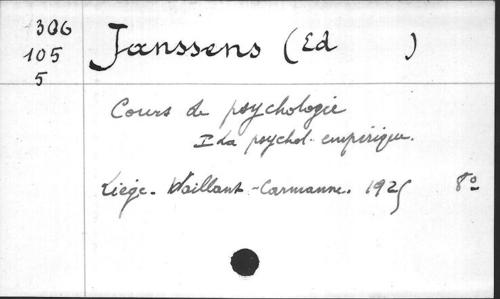 306
105
5
Janssens (Ed )
Cours de psychologie
I La psychol. empirique.
Liége. Vaillant-Carmanne. 1925 8º